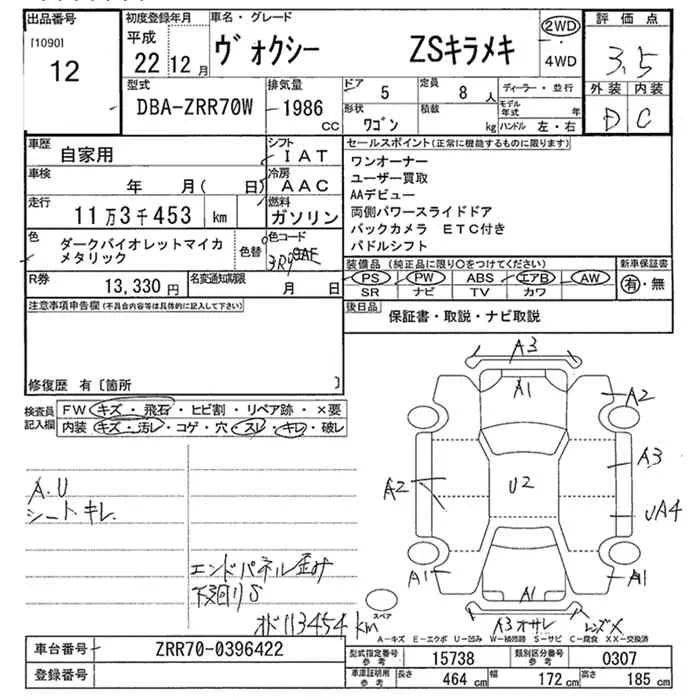 出品番号 初度登録年月 車名・グレード 2WD 評価点
[1090] 平成 ヴォクシー ZSキラメキ ・ 3.5
12 22年 12月 4WD 外装 内装
型式 排気量 ドア 5 定員 8人 ディーラー・並行 D C
DBA-ZRR70W 1986cc 形状 ワゴン 積載 kg モデル年式 年
ハンドル 左・右
車歴 自家用 シフト IAT セールスポイント(正常に機能するものに限ります)
車検 年 月( 日) 冷房 AAC ワンオーナー
ユーザー買取
走行 11万3千453 km 燃料 ガソリン AAデビュー
両側パワースライドドア
色 ダークバイオレットマイカメタリック 色替 色コード 3R9 バックカメラ ETC付き
パドルシフト
装備品(純正品に限り○をつけてください) 新車保証書
R券 13,330円 名変通知期限 月 日 PS PW ABS エアB AW 有・無
SR ナビ TV カワ
注意事項申告欄(不具合内容等は具体的に記入して下さい) 後日品 保証書・取説・ナビ取説
修復歴 有〔箇所 〕
検査員記入欄 FW キズ・飛石・ヒビ割・リペア跡・×要
内装 キズ・汚レ・コゲ・穴・スレ・キレ・破レ
A3
A1 A2
A2 U2 A3
UA4
A1 A1 A1
A3 オサレ レンズX
スペア
A.U
シート キレ
エンドパネル歪み
下廻りS
オド113454km
A-キズ E-エクボ U-凹み W-補修跡 S-サビ C-腐食 XX-交換済
車台番号 ZRR70-0396422 型式指定番号参考 15738 類別区分番号参考 0307
登録番号 車庫証明用参考 長さ 464cm 幅 172cm 高さ 185cm